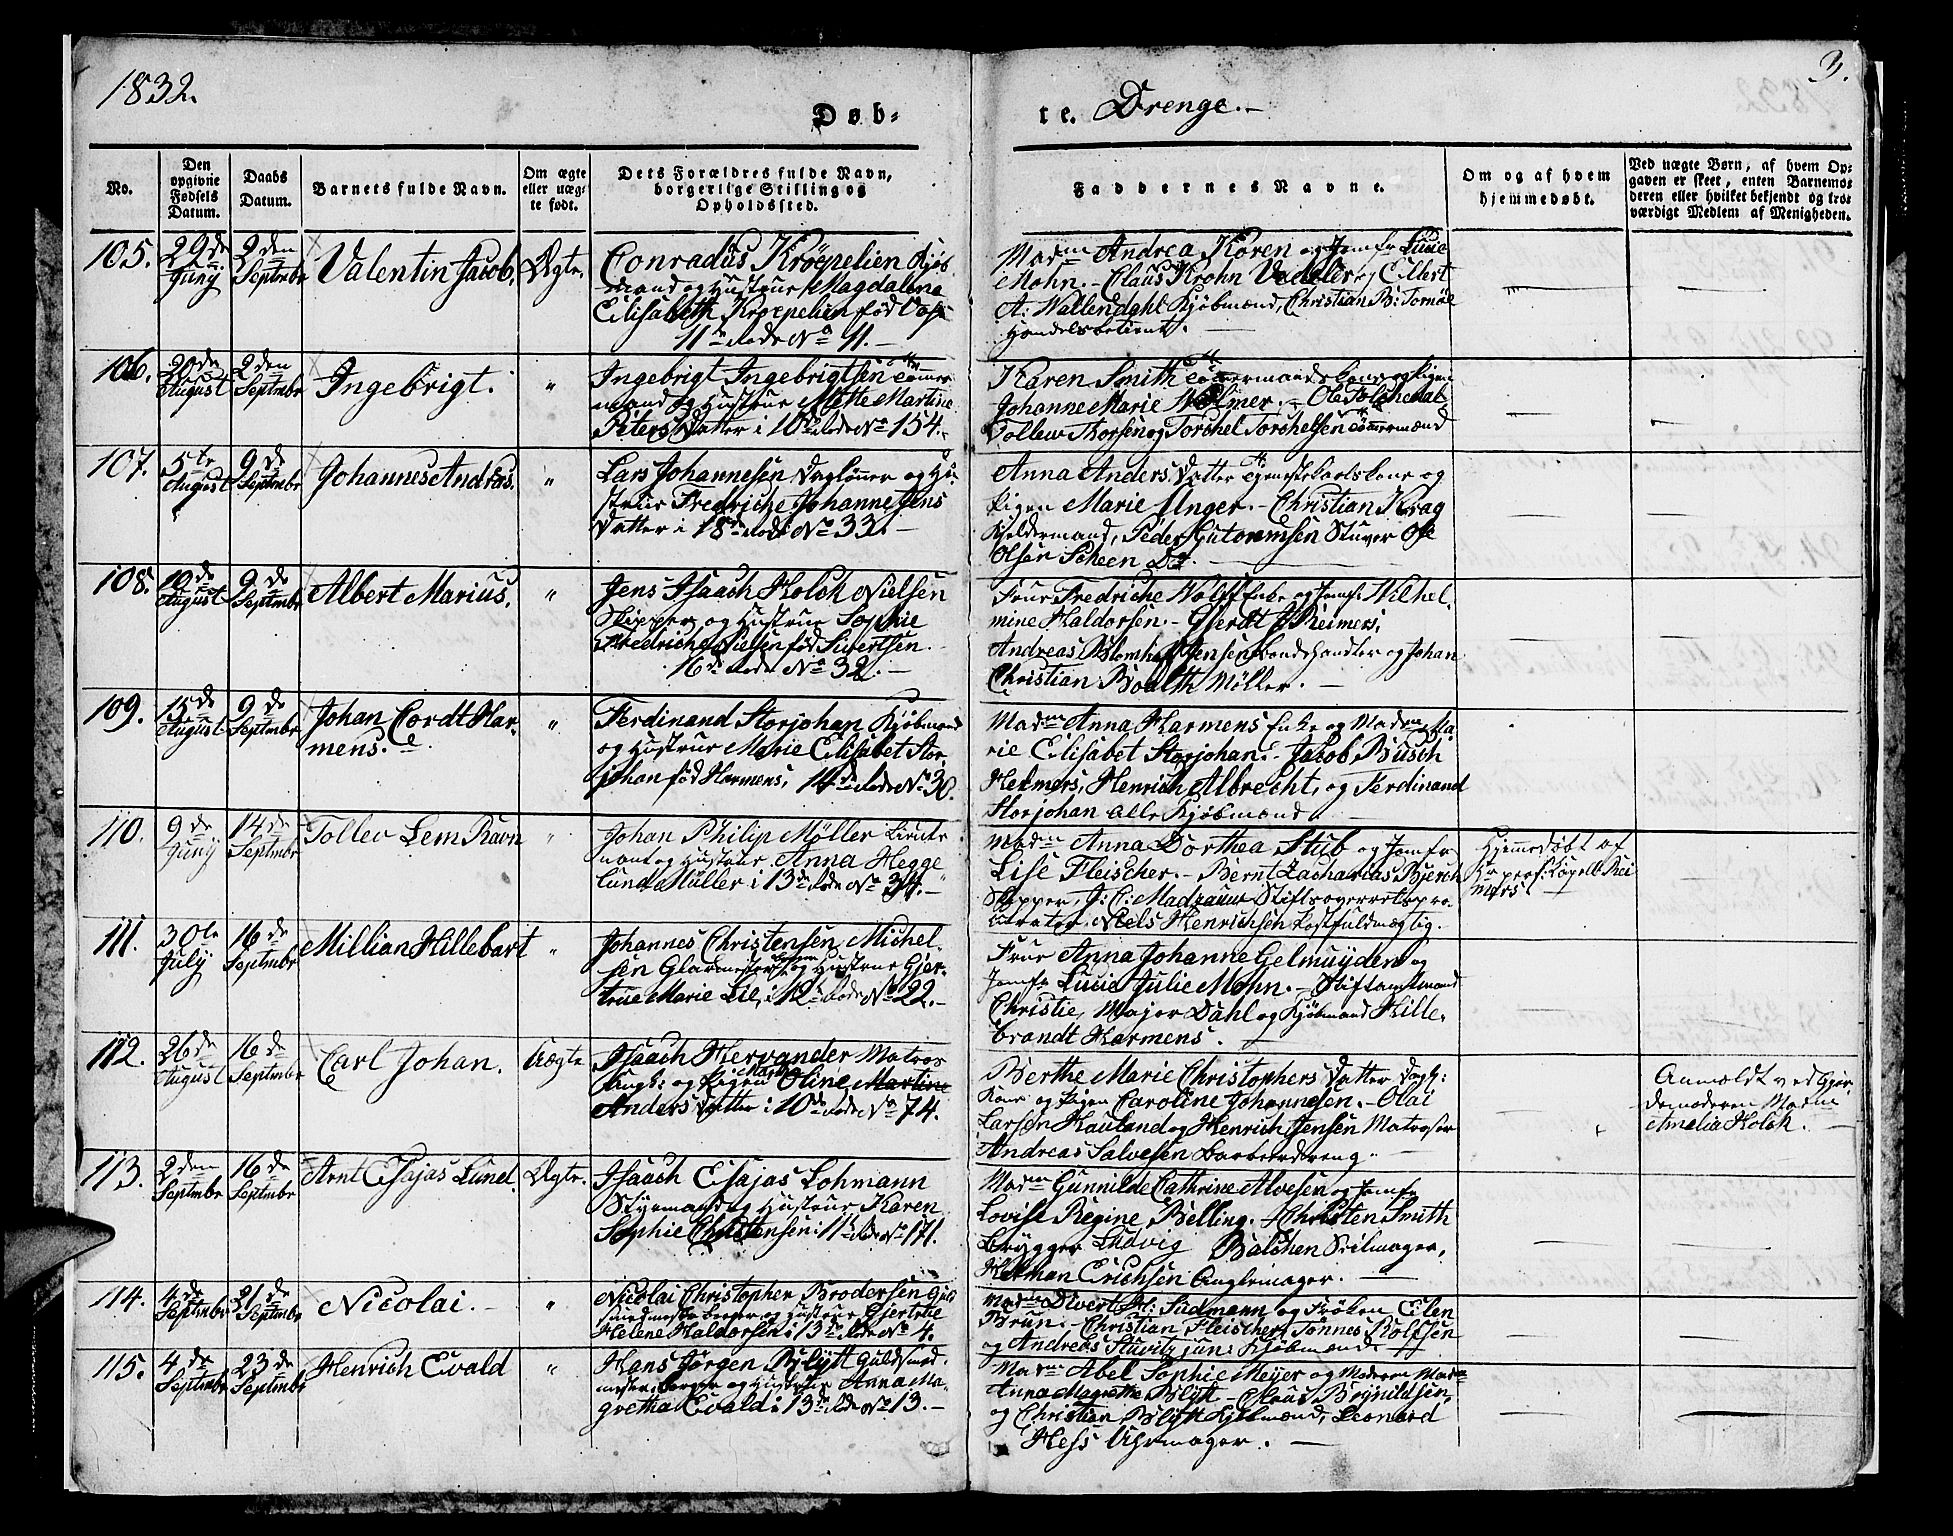 1832.
3.
Døb-
te. Drenge.
No.
Den opgivne Fødsels Datum.
Daabs Datum.
Barnets fulde Navn.
Om ægte eller uægte født.
Dets Forældres fulde Navn, borgerlige Stilling og Opholdssted.
Faddernes Navne.
Om og af hvem hjemmedøbt.
Ved uægte Børn, af hvem Opgaven er skeet, enten Barnemoderen eller hvilket bekjendt og troværdigt Medlem af Menigheden.
105. 29de Juny 2den Septembr Valentin Jacob. Ægte.
Conradus Krøepelien Kjøb-
mand og Hustrue Magdalena
Elisabeth Kroepelien fød
11te Rode No 11.
Madm Andrea Koren og Jomfr Lucie
Mohn. Claus Krohn Vedeler, Eilert
A: Wallendahl Kjøbmænd, Christian B: Tornøe
Handelsbetient.
106. 20de August 2den Septembr Ingebrigt. "
Ingebrigt Ingebrigtsen Tømmer
mand og Hustrue Mette Martine
Peters Datter i 10de Rode No 154.
Karen Smith Tømmermands Kone og Pigen
Johanne Marie Wolmer. Ole
Tollew Thorsen og Torchel Torchelsen Tømmermænd
107. 5te August 9de Septembr Johannes Andreas. "
Lars Johannesen Dagløner og Hu-
strue Fredriche Johanne Jens
Datter i 18de Rode No 33.
Anna Anders Datter Tjenestekarls Kone og
Pigen Marie Unger. Christian Krag
Kjeldermand, Peder Gutormsen Stuver Ole
Olsen Scheen Do.
108. 10de August 9de Septembr Albert Marius. "
Jens Isaach Holck Nielsen
Skipper og Hustrue Sophie
Fredriche Nielsen fød Sivertsen.
16de Rode No 32.
Frue Fredriche Wolff Enke og Jomf: Wilhel-
mine Haldorsen. Gierdt Reimers,
Andreas Blomhof Jensen Bondehandler og Johan
Christian Boalth Møller.
109. 15de August 9de Septembr Johan Cordt Har-
mens. "
Ferdinand Storjohan Kjøbmand
og Hustrue Marie Elisabet Stor-
johan fød Harmens, 14de Rode No 30.
Madm Anna Harmens Enke og Madm Ma-
rie Elisabet Storjohan. Jacob Busch
Hermers, Henrich Albrecht, og Ferdinand
Storjohan alle Kjøbmænd.
110. 9de Juny 14de Septembr Tollev Lem Ravn "
Johan Philip Møller Lieute-
nant og Hustrue Anna Hegge-
lund Müller i 13de Rode No 34.
Madm Anna Dorthea Stub og Jomfr
Lise Fleischer. Bernt Zacharias Bjerch
Skipper, J: C: Madzauw Stiftsoverretspro-
curator. Niels Henrichsen Postfuldmægtig.
Hjemmedøbt af
Hr pers: Capell: Rei-
mers
111. 30te July 16de Septembr Millian Hillebart "
Johannes Christensen Michel-
sen Glarmester og Hustrue Gjer-
true Marie Lie, i 12te Rode No 22.
Frue Anna Johanne Gelmuyden og
Jomfr Lucie Julie Mohn. Stiftamtmand
Christie, Major Dahl og Kjøbmand Hille-
brandt Harmens.
112. 26de August 16de Septembr Carl Johan. Uægte
Isaach Hervander Matros
Ungk: og Pigen Martha Oline Martine
Anders Datter i 10de Rode No 74.
Berthe Marie Christophers Datter Dagk:
Kone og Pigen Caroline Johannesen. Olai
Larsen Hauland og Henrich Jensen Matroser
Andreas Salvesen Barbeerdreng.
Anmeldt ved Gjor-
demoderen Madm
Amelia Holck.
113. 2den Septembr 16de Septembr Arnt Esajas Lund. Ægte.
Isaach Esajas Lohmann
Styrmand og Hustrue Karen
Sophie Christensen i 11te Rode No 171.
Madm Gunnilde Cathrine Alvesen og Jomfr
Lovise Regine Belling. Christen Smith
Brygger Ludvig Balchen Seilmager,
Herman Erichsen Anglemager.
114. 4de Septembr 21de Septembr Nicolai. "
Nicolai Christopher Brodersen Guld-
smedmester Borger og Hustrue Gjertrue
Helene Haldorsen i 13de Rode No 4.
Madm Divert M: Sudmann og Frøken Elen
Brun. Christian Fleischer, Tønnes Rolfsen
og Andreas Stuvitz jun: Kjøbmænd.
115. 4de Septembr 23de Septembr Henrich Evald "
Hans Jørgen Blytt Guldsmed-
mester, Borger og Hustrue Anna Ma-
gretha Evald i 13de Rode No 13.
Madm Abel Sophie Meyer og Moderen Madm
Anna Magrethe Blytt. Claus Brynildsen,
og Christian Blytt Kjøbmænd, Leonard
Hess Uhrmager.